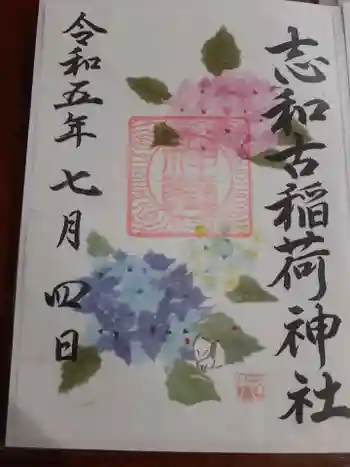 志和古稲荷神社
令和五年七月四日